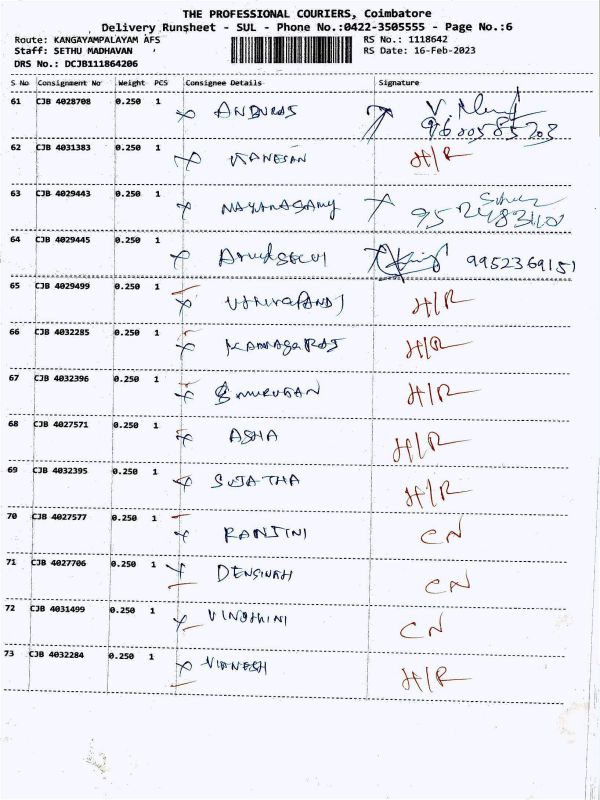 THE PROFESSIONAL COURIERS, Coimbatore
Delivery Runsheet - SUL - Phone No.:0422-3505555 - Page No.:6
Route: KANGAYAMPALAYAM AFS RS No.: 1118642
Staff: SETHU MADHAVAN RS Date: 16-Feb-2023
DRS No.: DCJB111864206
S No Consignment No Weight PCS Consignee Details Signature
61 CJB 4028708 0.250 1
9600585203
62 CJB 4031383 0.250 1 H/R
63 CJB 4029443 0.250 1
64 CJB 4029445 0.250 1 9952369151
65 CJB 4029499 0.250 1 H/R
66 CJB 4032285 0.250 1 H/R
67 CJB 4032396 0.250 1 H/R
68 CJB 4027571 0.250 1 ASHA H/R
69 CJB 4032395 0.250 1 SUJATHA H/R
70 CJB 4027577 0.250 1 RANJINI CN
71 CJB 4027706 0.250 1 CN
72 CJB 4031499 0.250 1 VINOTHINI CN
73 CJB 4032284 0.250 1 H/R